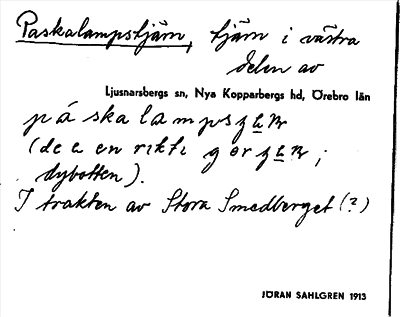 Paskalampstjärn, tjärn i västra
delen av
Ljusnarsbergs sn, Nya Kopparbergs hd, Örebro län
på ska lamps
(de e en rikti
dybotten).
I trakten av Stora Smedberget (?)
JÖRAN SAHLGREN 1913